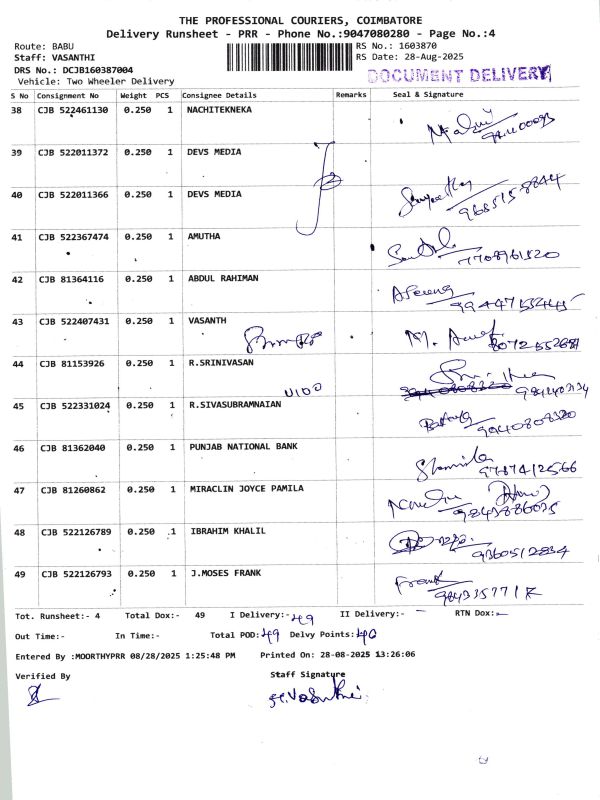 THE PROFESSIONAL COURIERS, COIMBATORE
Delivery Runsheet - PRR - Phone No.:9047080280 - Page No.:4
Route: BABU RS No.: 1603870
Staff: VASANTHI RS Date: 28-Aug-2025
DRS No.: DCJB160387004
Vehicle: Two Wheeler Delivery
DOCUMENT DELIVERY
S No Consignment No Weight PCS Consignee Details Remarks Seal & Signature
38 CJB 522461130 0.250 1 NACHITEKNEKA
39 CJB 522011372 0.250 1 DEVS MEDIA
40 CJB 522011366 0.250 1 DEVS MEDIA
9685158844
41 CJB 522367474 0.250 1 AMUTHA
7708961520
42 CJB 81364116 0.250 1 ABDUL RAHIMAN
43 CJB 522407431 0.250 1 VASANTH
44 CJB 81153926 0.250 1 R.SRINIVASAN
45 CJB 522331024 0.250 1 R.SIVASUBRAMNAIAN
9940808320
46 CJB 81362040 0.250 1 PUNJAB NATIONAL BANK
9787412566
47 CJB 81260862 0.250 1 MIRACLIN JOYCE PAMILA
9843886035
48 CJB 522126789 0.250 1 IBRAHIM KHALIL
9360512834
49 CJB 522126793 0.250 1 J.MOSES FRANK
Frank
Tot. Runsheet:- 4 Total Dox:- 49 I Delivery:- 49 II Delivery:- RTN Dox:-
Out Time:- In Time:- Total POD: 49 Delvy Points:
Entered By :MOORTHYPRR 08/28/2025 1:25:48 PM Printed On: 28-08-2025 13:26:06
Verified By Staff Signature